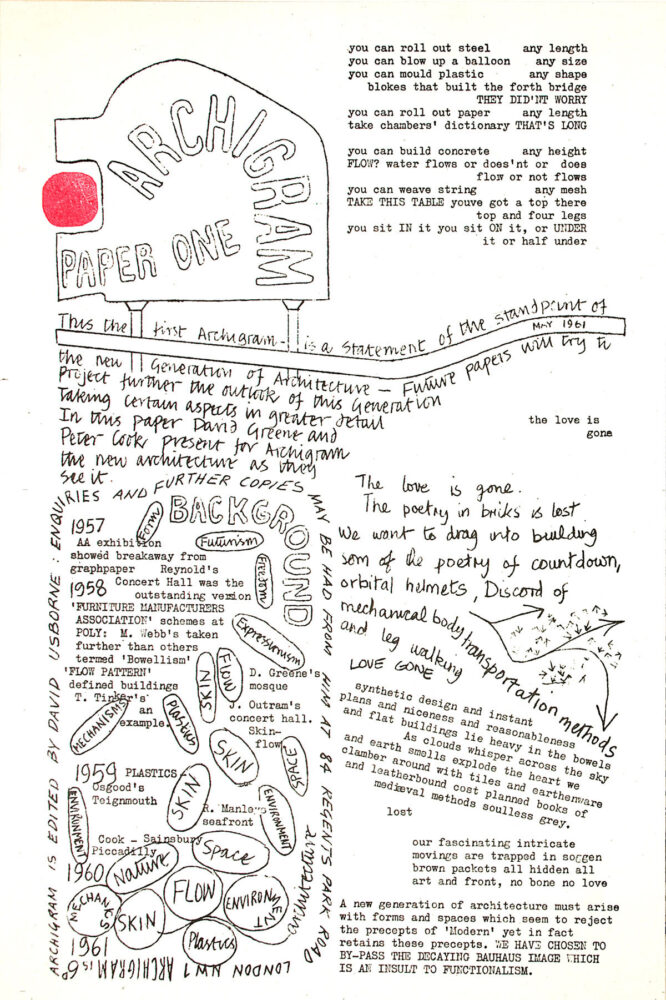 ARCHIGRAM
PAPER ONE
you can roll out steel any length
you can blow up a balloon any size
you can mould plastic any shape
blokes that built the forth bridge
THEY DID'NT WORRY
you can roll out paper any length
take chambers' dictionary THAT'S LONG
you can build concrete any height
FLOW? water flows or does'nt or does
flow or not flows
you can weave string any mesh
TAKE THIS TABLE youve got a top there
top and four legs
you sit IN it you sit ON it, or UNDER
it or half under
This the first Archigram - is a statement of the standpoint of
MAY 1961
the new Generation of Architecture — Future papers will try to
Project further the outlook of this Generation
Taking certain aspects in greater detail
In this paper David Greene and
Peter Cook present for Archigram
the new architecture as they
see it.
the love is
gone
ARCHIGRAM IS EDITED BY DAVID USBORNE : ENQUIRIES AND FURTHER COPIES MAY BE HAD FROM HIM AT 84 REGENT'S PARK ROAD
LONDON NW1
ARCHIGRAM is 6d
BACKGROUND
1957
Form
AA exhibition
Futurism
showed breakaway from
graphpaper Reynold's
1958 Concert Hall was the
outstanding version
'FURNITURE MANUFACTURERS
ASSOCIATION' schemes at
POLY: M. Webb's taken
Expressionism
further than others
termed 'Bowellism'
'FLOW PATTERN'
defined buildings
SKIN
FLOW
D. Greene's
mosque
T. Tinker's
an
example.
MECHANISMS
Plastics
J. Outram's
concert hall.
Skin-
flow
SKIN
SPACE
1959 PLASTICS
Osgood's
Teignmouth
ENVIRONMENT
SKIN
R. Manley's
seafront
ENVIRONMENT
Cook - Sainsbury
Piccadilly
Space
architecture
1960
Nature
MECHANICS
SKIN
FLOW
ENVIRONMENT
Plastics
1961
The love is gone.
The poetry in bricks is lost
We want to drag into building
som of the poetry of countdown,
orbital helmets, Discord of
mechanical body transportation methods
and leg walking
LOVE GONE
synthetic design and instant
plans and niceness and reasonableness
and flat buildings lie heavy in the bowels
As clouds whisper across the sky
and earth smells explode the heart we
clamber around with tiles and earthenware
and leatherbound cost planned books of
mediæval methods soulless grey.
lost
our fascinating intricate
movings are trapped in soggen
brown packets all hidden all
art and front, no bone no love
A new generation of architecture must arise
with forms and spaces which seem to reject
the precepts of 'Modern' yet in fact
retains these precepts. WE HAVE CHOSEN TO
BY-PASS THE DECAYING BAUHAUS IMAGE WHICH
IS AN INSULT TO FUNCTIONALISM.